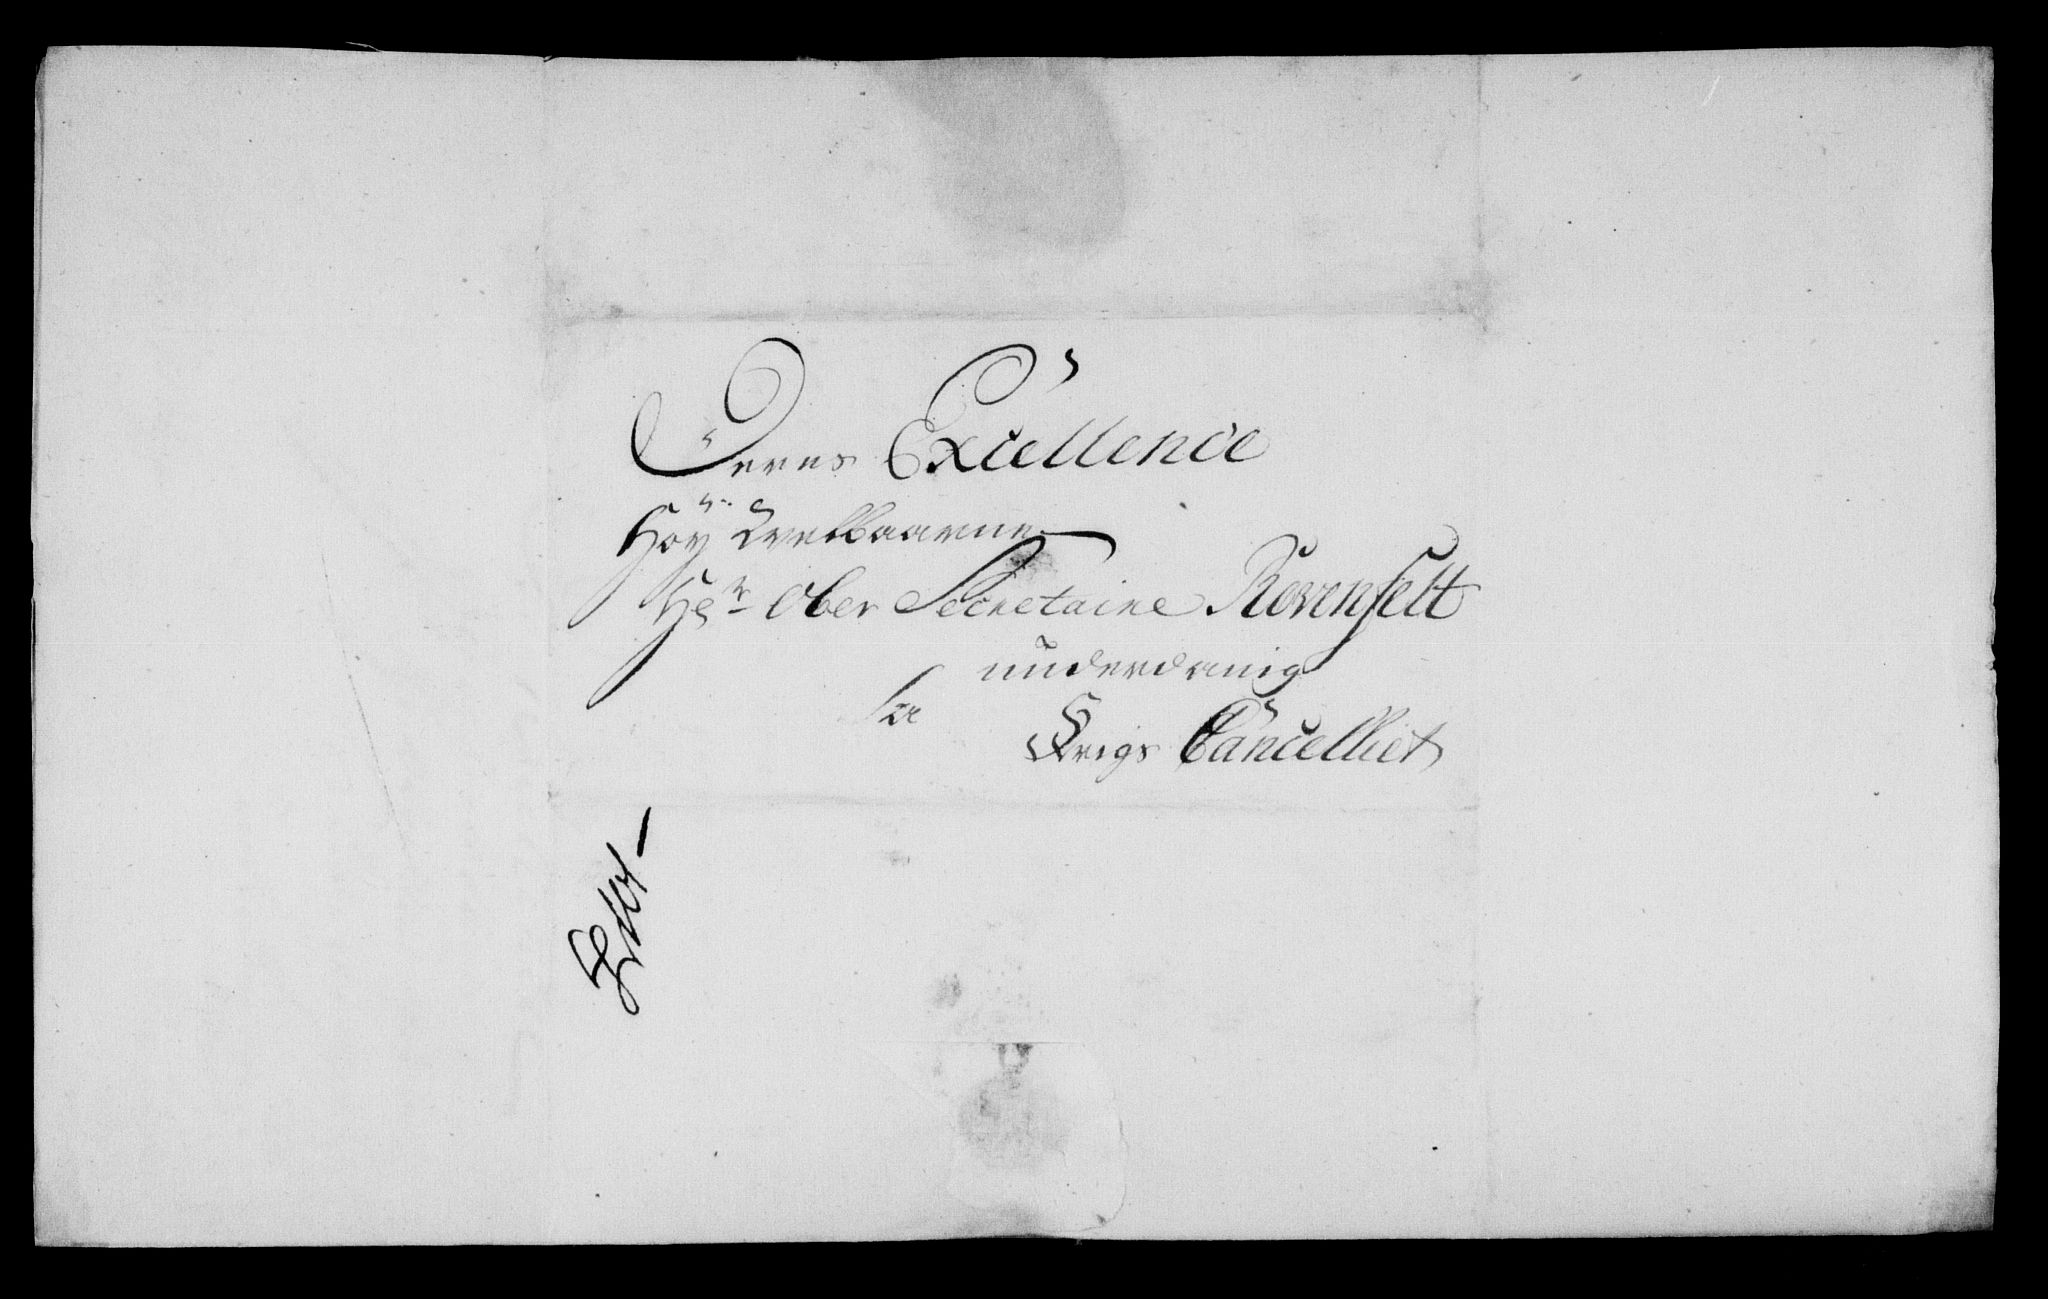 Deres Excellence
Höy Velbaarne
Hr Ober Secretaire Revenfelt
underdanig
fra
Krigs Cancelliet